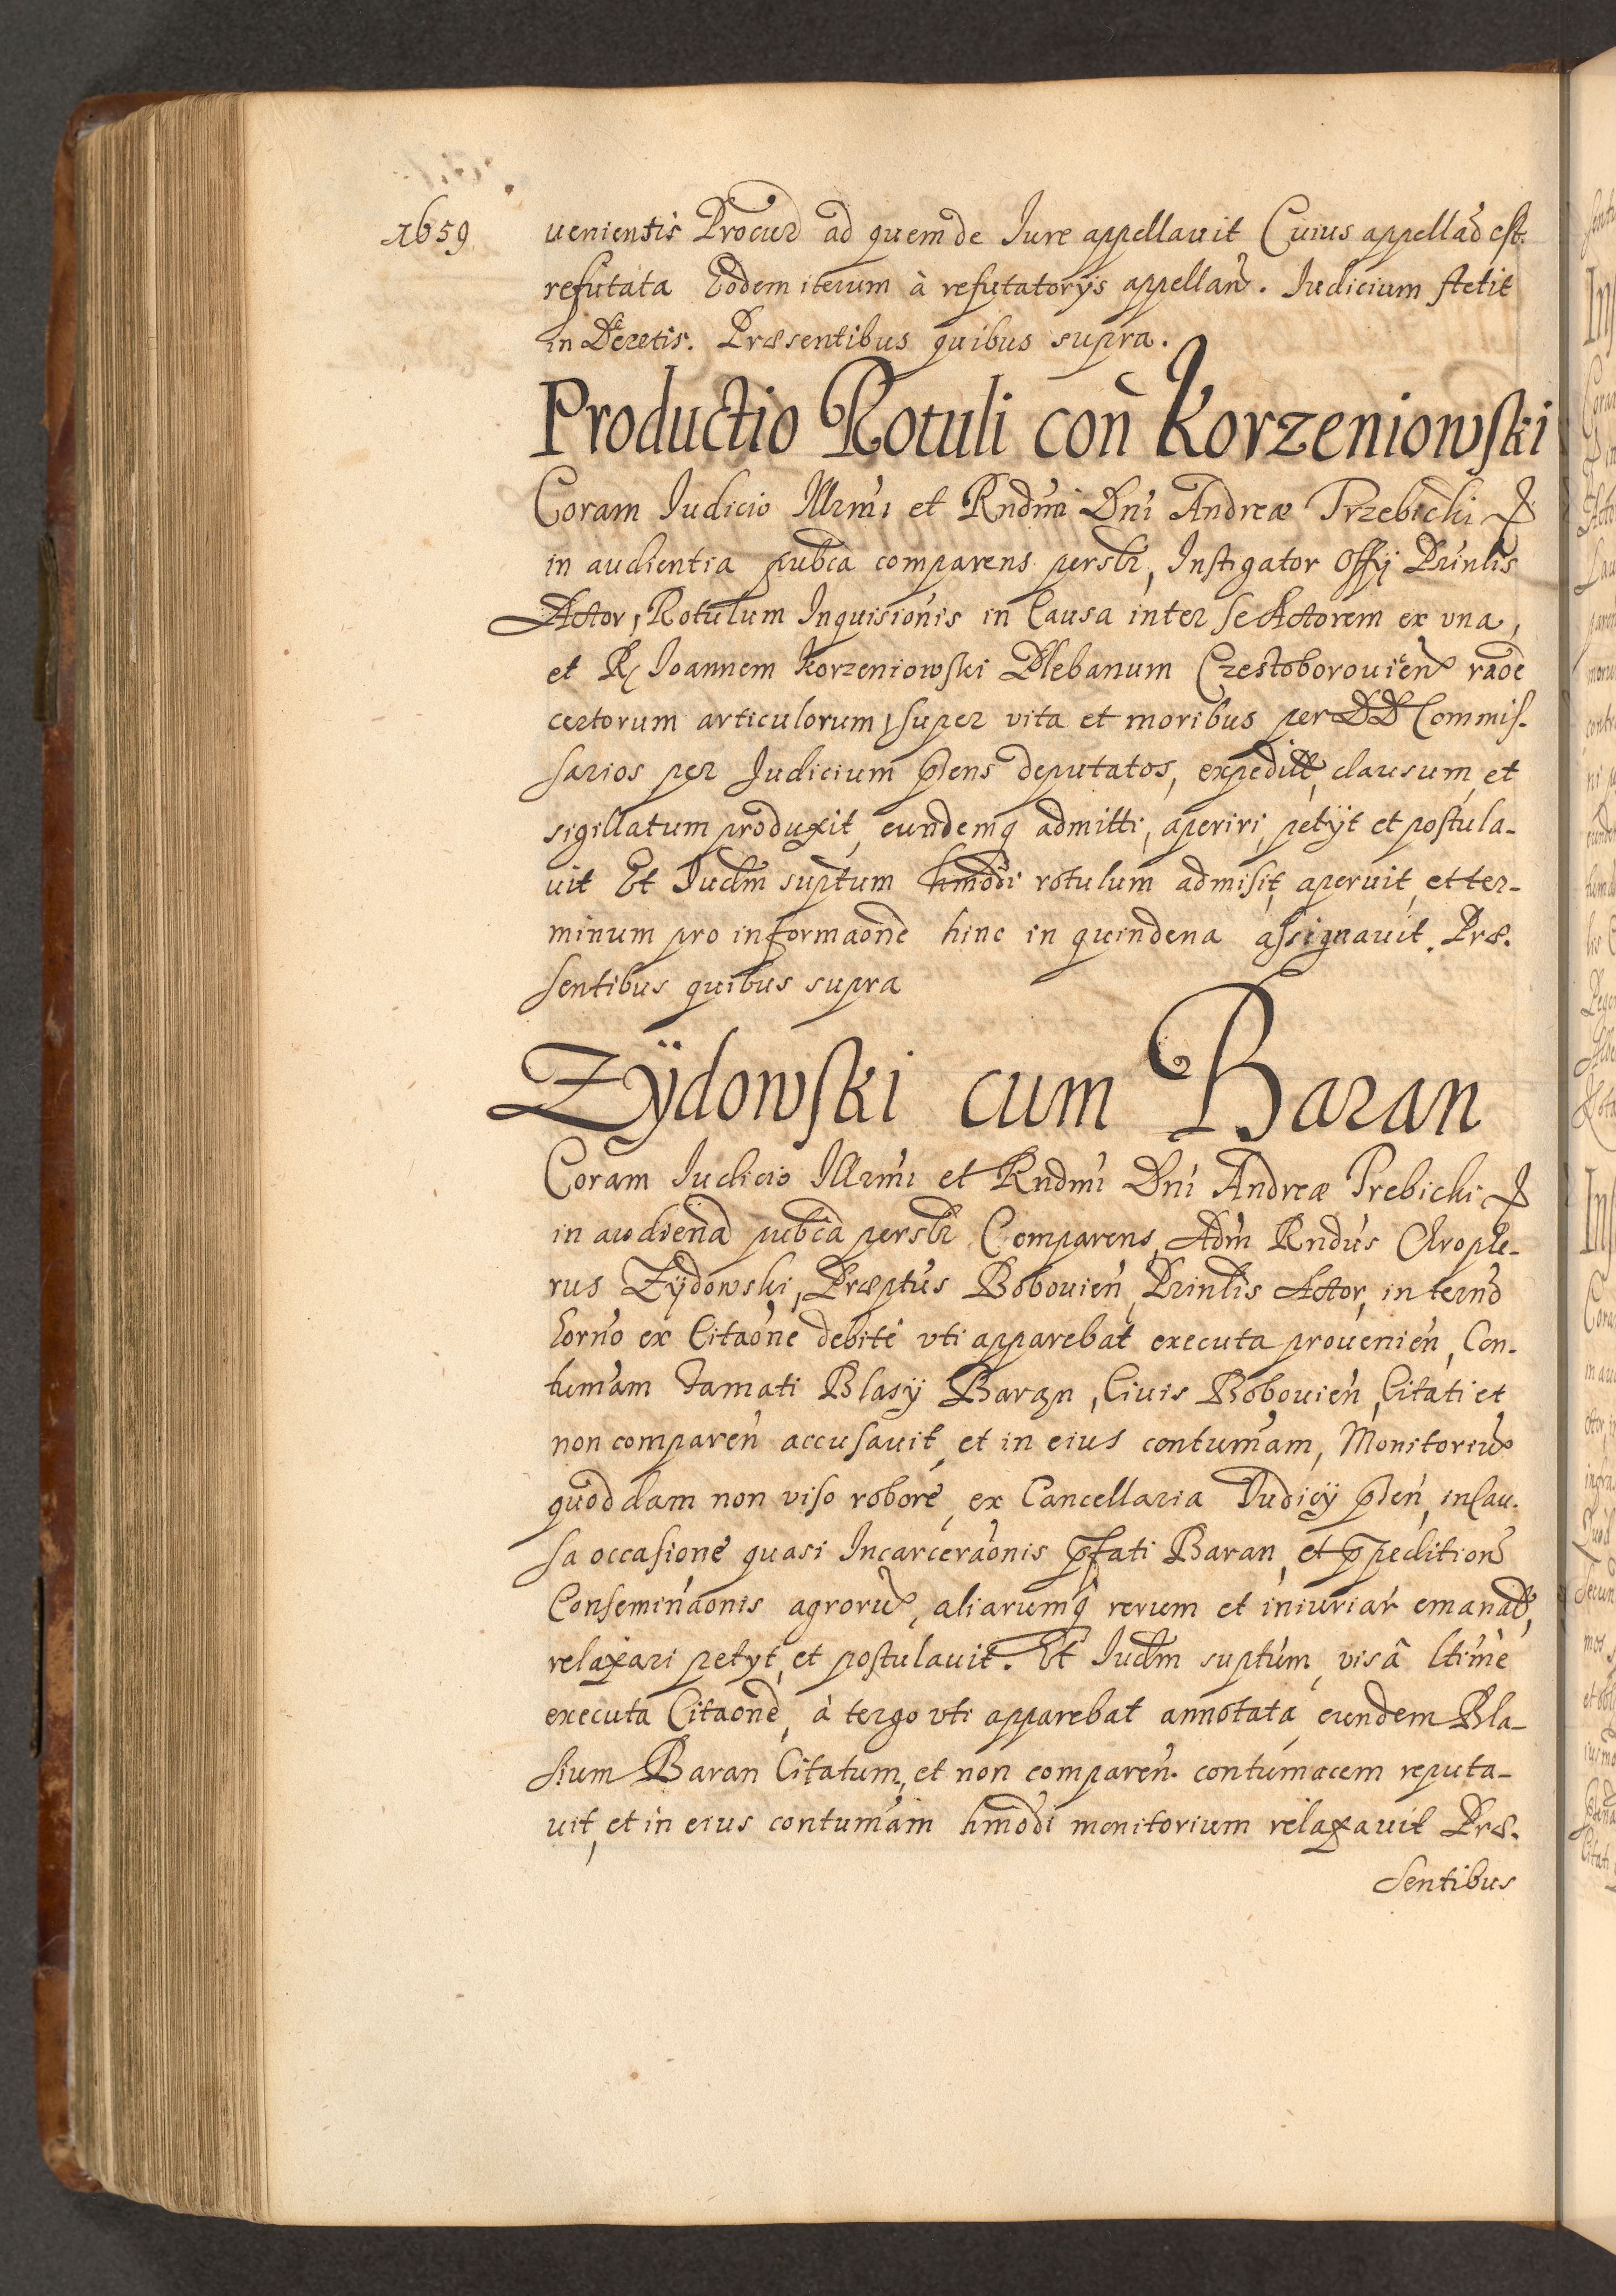 1659
uenientis Procur ad quem de Iure appellauit Cuius appellao est
refutata Eodem iterum à refutatorijs appellan. Iudicium stetit
in Decretis. Præsentibus quibus supra.
Productio Rotuli con Korzeniowski
Coram Iudicio Illrmi et Rndmi Dni Andreæ Trzebicki
in audientia pubca comparens persr, Instigator Offij Prinlis
Actor, Rotulum Inquisionis in Causa inter se Actorem ex una,
et R Ioannem Korzeniowski Plebanum Czestoborouien raoe
certorum articulorum, super vita et moribus per DD Commis-
sarios per Iudicium pñs deputatos, expedit, clausum, et
sigillatum produxit, eundemq admitti, aperiri, petijt et postula-
uit Et Iudm suptum hmodi rotulum admisit, aperuit, et ter-
minum pro informaone hinc in quindena assignauit. Præ-
sentibus quibus supra
Zÿdowski cum Baran
Coram Iudicio Illrmi et Rndmi Dni Andreæ Trebicki
in audiena pubca persr Comparens, Adm Rndus Chrople-
rus Zÿdowski, Præptus Bobouien, Prinlis Actor, in termo
horno ex Citaone debitè vti apparebat executa prouenien, Con-
tumam famati Blasij Baran, Ciuis Bobouien, Citati et
non comparen accusauit, et in eius contumam, Monitoriu
quoddam non viso robore, ex Cancellaria Iudicij pñ, in Cau-
sa occasione quasi Incarceraonis pfati Baran, et ppedition
Conseminaonis agroru, aliarumq rerum et iniuriar emanat,
relaxari petyt, et postulauit. Et Iudm suptum, visâ ltime
executa Citaone, à tergo vti apparebat annotata, eundem Bla-
sium Baran Citatum, et non comparen. contumacem reputa-
uit, et in eius contumam hmodi monitorium relaxauit Præ-
sentibus